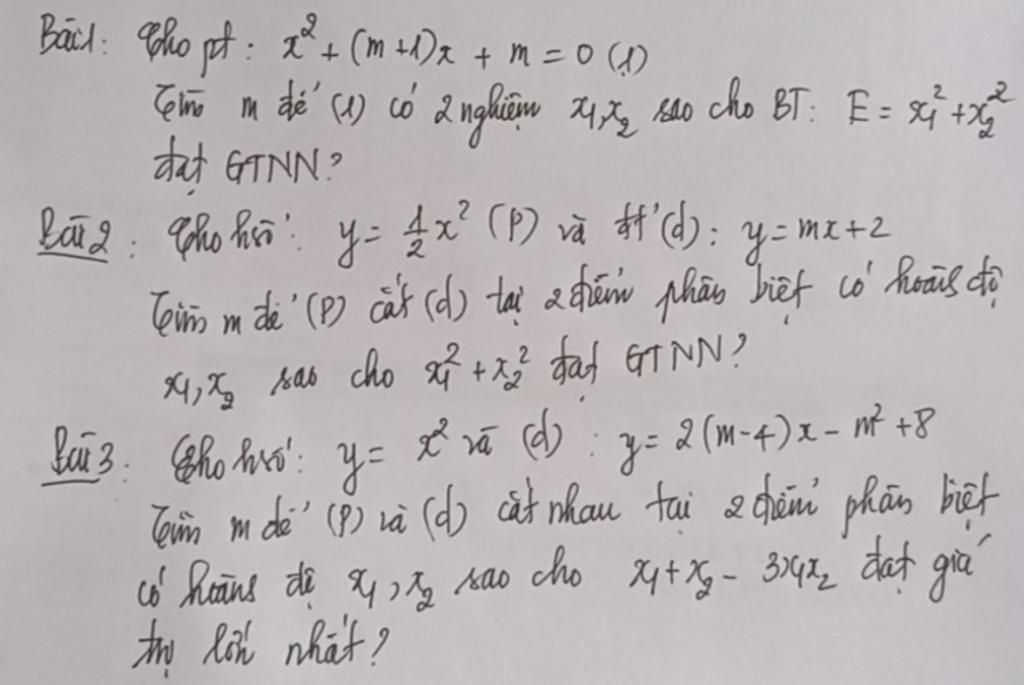 Bài 1: Cho pt: x² + (m+1)x + m = 0 (1)
Tìm m để (1) có 2 nghiệm x₁,x₂ sao cho BT: E = x₁² + x₂²
đạt GTNN?
Bài 2: Cho hsố: y = 1/2 x² (P) và đt (d): y = mx+2
Tìm m để (P) cắt (d) tại 2 điểm phân biệt có hoành độ
x₁, x₂ sao cho x₁² + x₂² đạt GTNN?
Bài 3: Cho hsố: y = x² và (d): y = 2(m-4)x - m² + 8
Tìm m để (P) và (d) cắt nhau tại 2 điểm phân biệt
có hoành độ x₁, x₂ sao cho x₁ + x₂ - 3x₁x₂ đạt giá
trị lớn nhất?